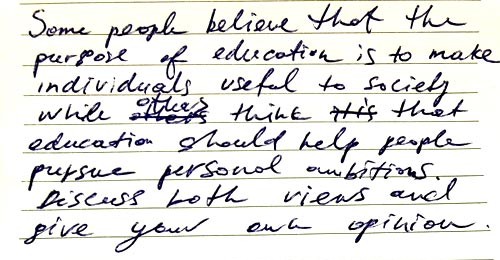 Some people believe that the
purpose of education is to make
individuals useful to society
while others think that
education should help people
pursue personal ambitions.
Discuss both views and
give your own opinion.